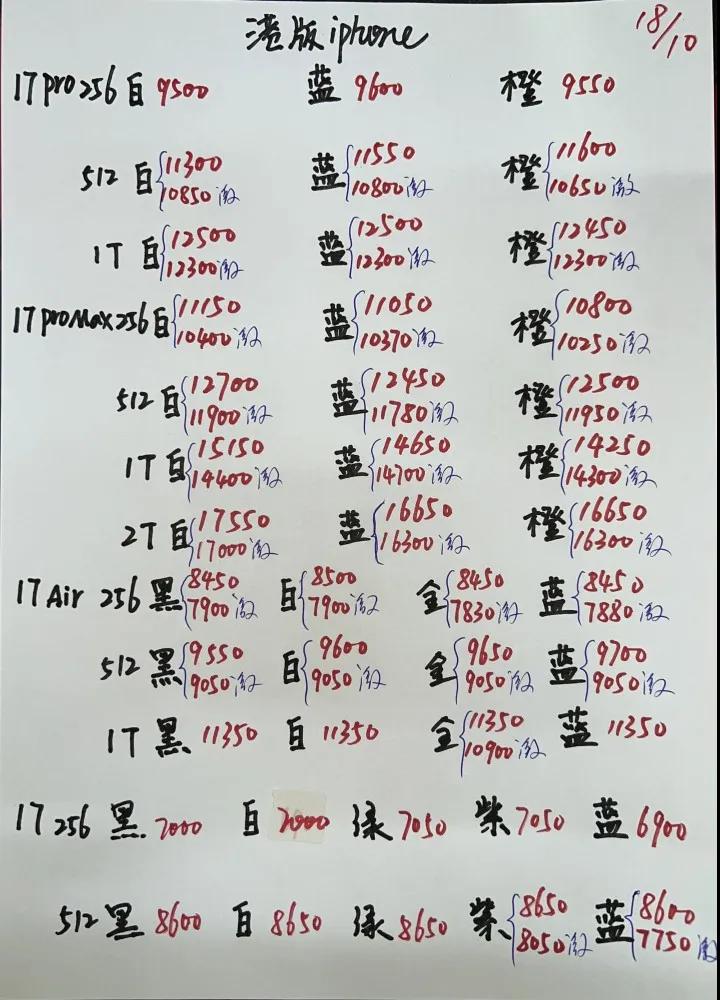 港版iphone 18/10
17pro256白 9500 蓝 9600 橙 9550
512 白 11300 蓝 11550 橙 11600
10850激 10800激 10650激
1T 白 12500 蓝 12500 橙 12450
12300激 12300激 12300激
17proMax256白 11150 蓝 11050 橙 10800
10400激 10370激 10250激
512白 12700 蓝 12450 橙 12500
11900激 11780激 11950激
1T白 15150 蓝 14650 橙 14250
14400激 14700激 14300激
2T白 17550 蓝 16650 橙 16650
17000激 16300激 16300激
17Air 256 黑 8450 白 8500 金 8450 蓝 8450
7900激 7900激 7830激 7880激
512黑 9550 白 9600 金 9650 蓝 9700
9050激 9050激 9050激 9050激
1T 黑 11350 白 11350 金 11350 蓝 11350
10900激
17 256 黑 7000 白 7000 绿 7050 紫 7050 蓝 6900
512黑 8600 白 8650 绿 8650 紫 8650 蓝 8600
8050激 7750激